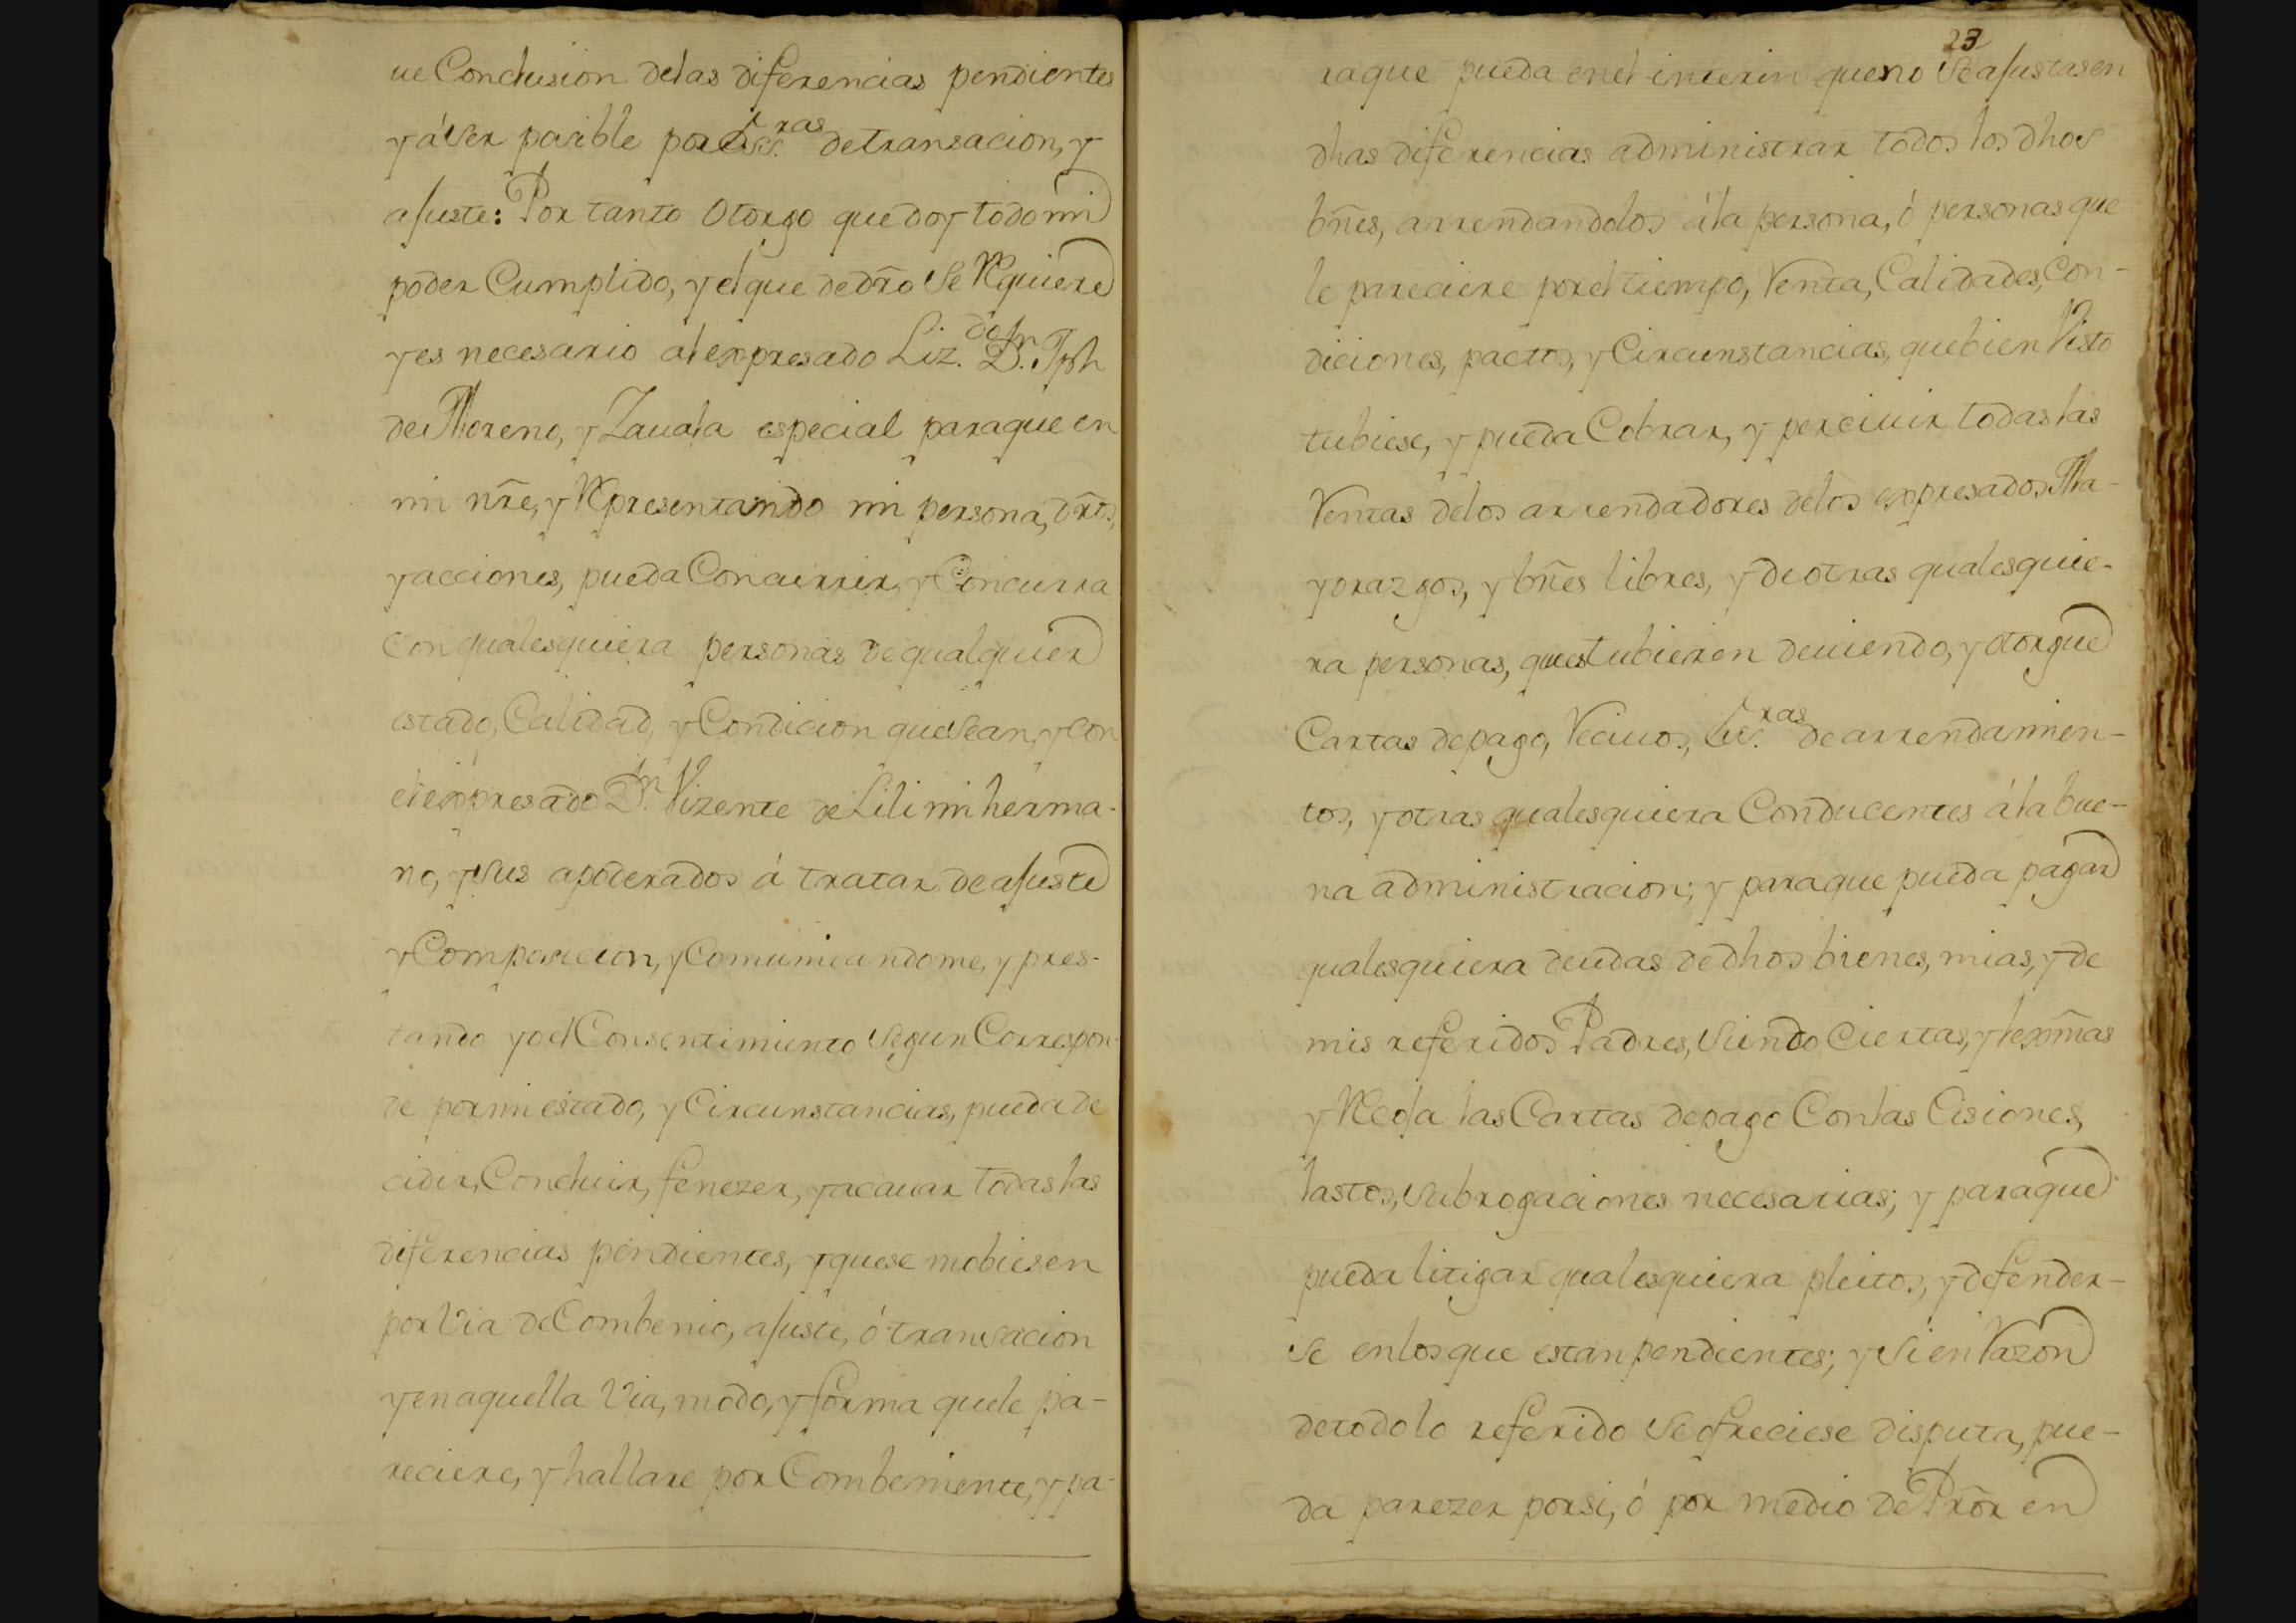 ue Conclusion delas diferencias pendientes
y á ser posible por Ess.ras de transacion, y
ajuste: Por tanto Otorgo que doy todo mi
poder Cumplido, y el que de dr̃o se Requiere
y es necesario al expresado Liz.do D.n Jph
de Moreno, y Zauala especial para que en
mi nr̃e, y Representando mi persona, dr̃os,
y acciones, pueda Concurrir, y Concurra
con qualesquiera personas de qualquier
estado, Calidad, y Condicion que sean, y con
el expresado D.n Vizente de Lili mi herma-
no, y sus apoderados á tratar de ajuste
y Composicion, y Comunicandome, y pres-
tando yo el Consentimiento segun Correspon-
de por mi estado, y Circunstancias, pueda de
cidir, Concluir, fenezer, y acauar todas las
diferencias pendientes, y que se mobiesen
por via de Combenio, ajuste, ó transacion
y en aquella via, modo, y forma que le pa-
reciere, y hallare por Combeniente, y pa-
23
raque pueda en el interin que no se ajustasen
dhas diferencias administrar todos los dhos
bñes, arrendandolos á la persona, ó personas que
le pareciere por el tiempo, Renta, Calidades, Con-
diciones, pactos, y Circunstancias, que bien Visto
tubiese, y pueda Cobrar, y perciuir todas las
Rentas delos arrendadores delos expresados Ma-
yorazgos, y bñes libres, y de otras qualesquie-
ra personas, que estubieren deuiendo, y otorgue
Cartas de pago, Reciuos, Ess.ras de arrendamien-
tos, y otras qualesquiera Conducentes á la bue-
na administracion; y para que pueda pagar
qualesquiera deudas de dhos bienes, mias, y de
mis referidos Padres, siendo Ciertas, y lexm̃as
y Recoja las Cartas de pago Con las Cisiones,
lastos, subrogaciones necesarias; y para que
pueda litigar qualesquiera pleitos, y defender-
se en los que estan pendientes; y si en Razon
de todo lo referido se ofreciese disputa, pue-
da parezer por si, ó por medio de Pr̃or en